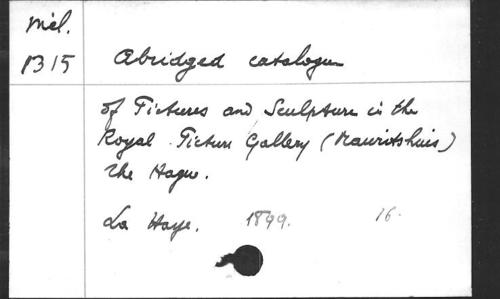 Mél.
1315
Abridged catalogue
of Pictures and Sculpture in the
Royal Picture Gallery (Mauritshuis)
The Hague.
La Haye. 1899. 16.